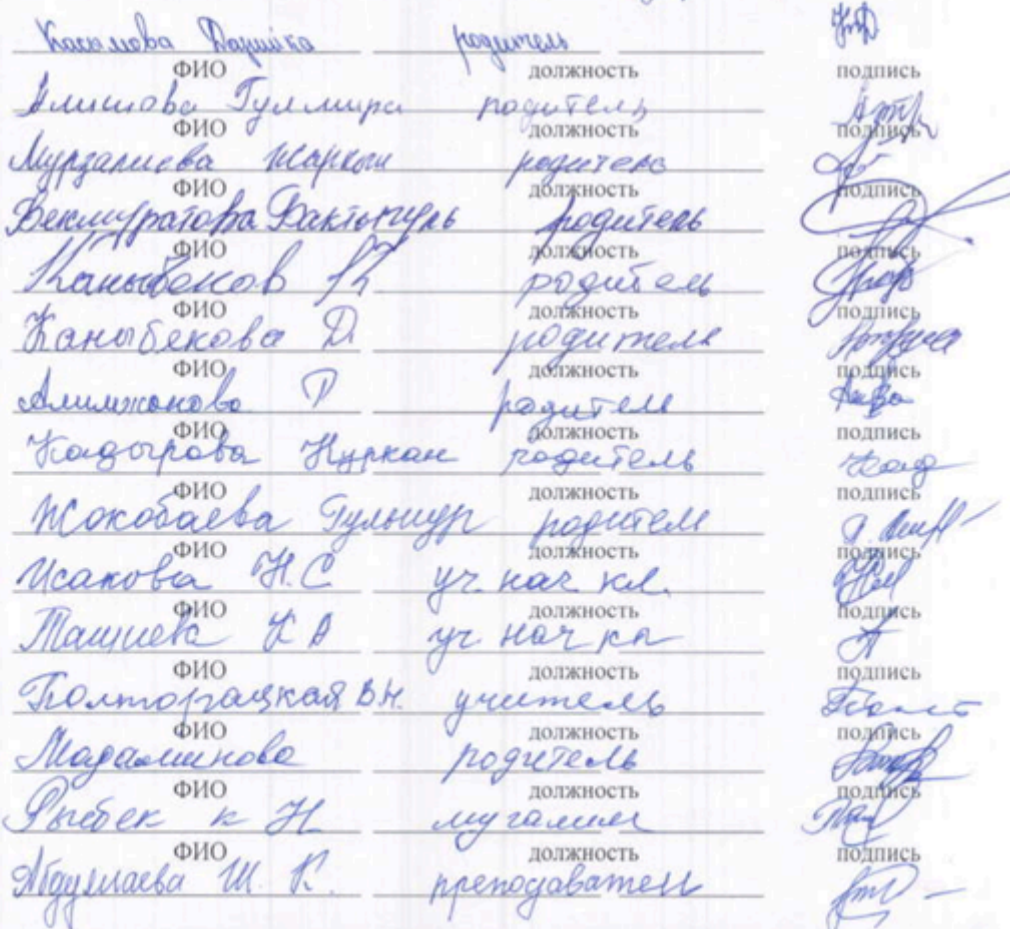 Касымова Дарийка родитель
ФИО должность подпись
Алишова Гулмира родитель
ФИО должность подпись
Мурзалиева Жаркын родитель
ФИО должность подпись
Бекмуратова Бактыгуль родитель
ФИО должность подпись
Каныбеков К родитель
ФИО должность подпись
Каныбекова Д родитель
ФИО должность подпись
Алимжонова Г родитель
ФИО должность подпись
Кадырова Нуркан родитель
ФИО должность подпись
Жокобаева Гульнур родитель
ФИО должность подпись
Исакова Н.С уч нач кл.
ФИО должность подпись
Ташиева К А уч нач кл
ФИО должность подпись
Полторацкая В.Н. учитель
ФИО должность подпись
Мадаминова родитель
ФИО должность подпись
Рысбек к Н мугалим
ФИО должность подпись
Абдуллаева Ш. К. преподаватель